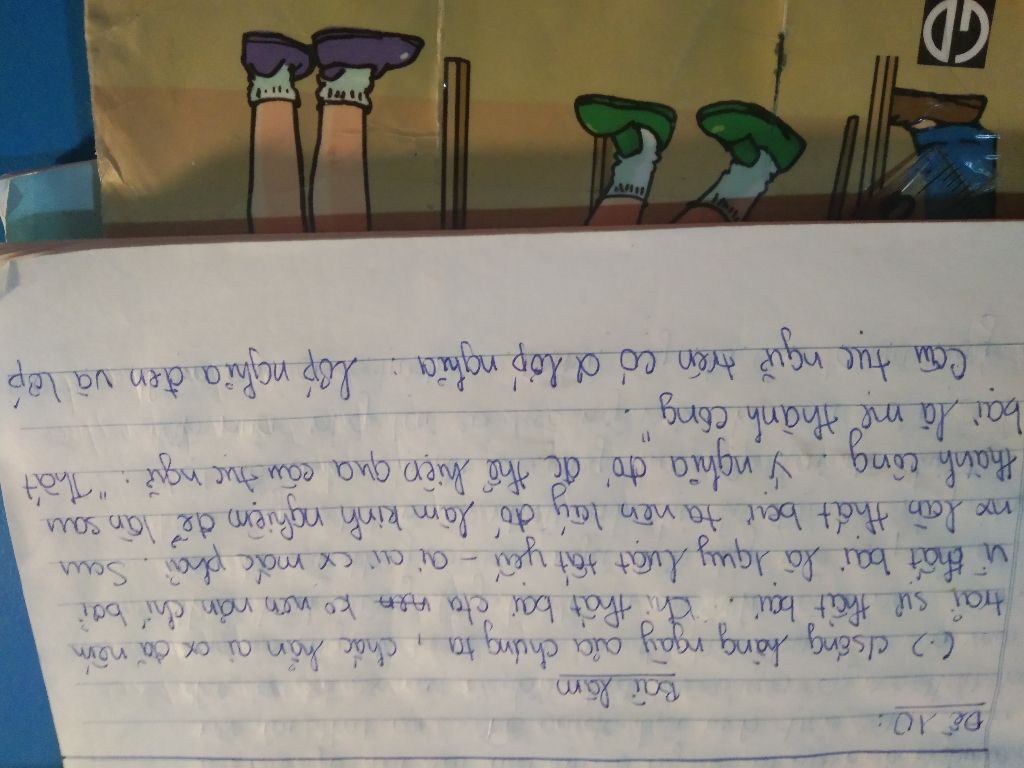 Đề 10:
Bài làm
(.) c/sống hàng ngày của chúng ta, chắc hẳn ai cx đã nếm
trải sự thất bại. Khi thất bại cta ko nên nản chí bởi
vì thất bại là quy luật tất yếu - ai ai cx mắc phải. Sau
mx lần thất bại ta nên lấy đó làm kinh nghiệm để lần sau
thành công. Ý nghĩa đó đc thể hiện qua câu tục ngữ: "Thất
bại là mẹ thành công".
Câu tục ngữ trên có 2 lớp nghĩa: lớp nghĩa đen và lớp
GD